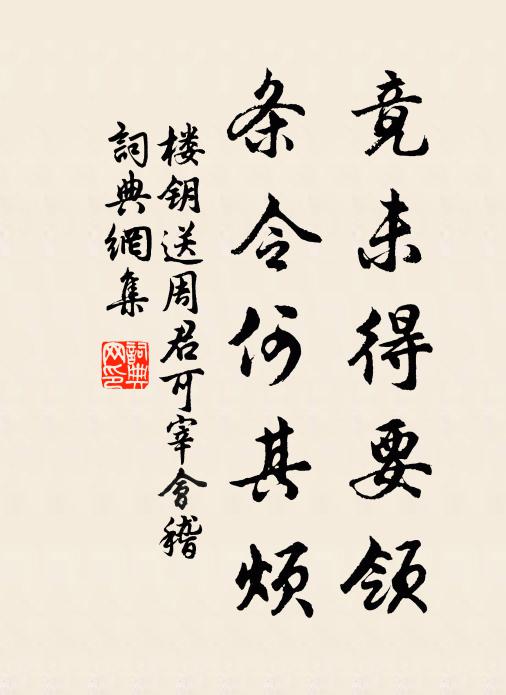 竟未得要领
条令何其烦
楼钥送周君可宰会稽
詞典網集
詞典網印